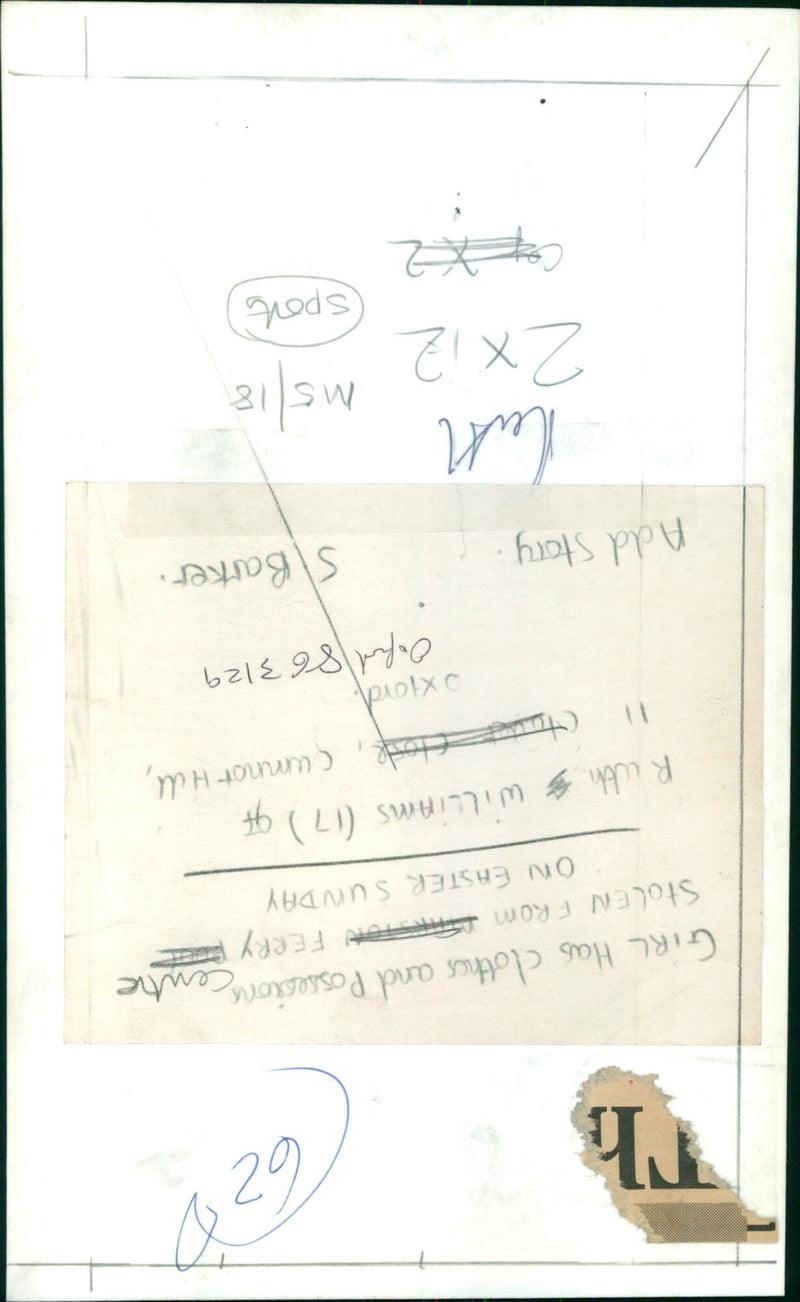 29
GIRL Has clothes and Possessions Centre
STOLEN FROM MARSTON FERRY
ON EASTER SUNDAY
Ruth WILLIAMS (17) of
11 Close, Cumnor Hill,
Oxford.
863129
Add Story. S Barker.
M5/18
2 X 12
Sports
X 2